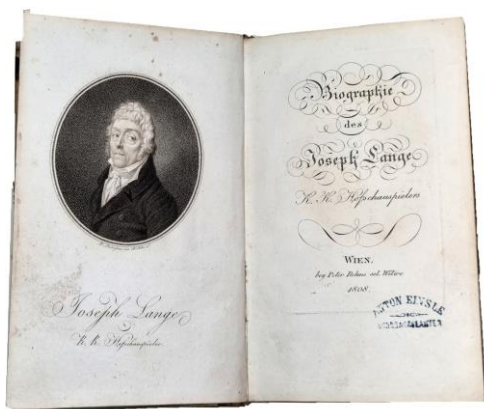 Joseph Lange
K. K. Hofschauspieler.
Biographie
des
Joseph Lange
K. K. Hofschauspielers
WIEN,
bey Peter Rehms sel. Witwe
1808.
ANTON EINSLE